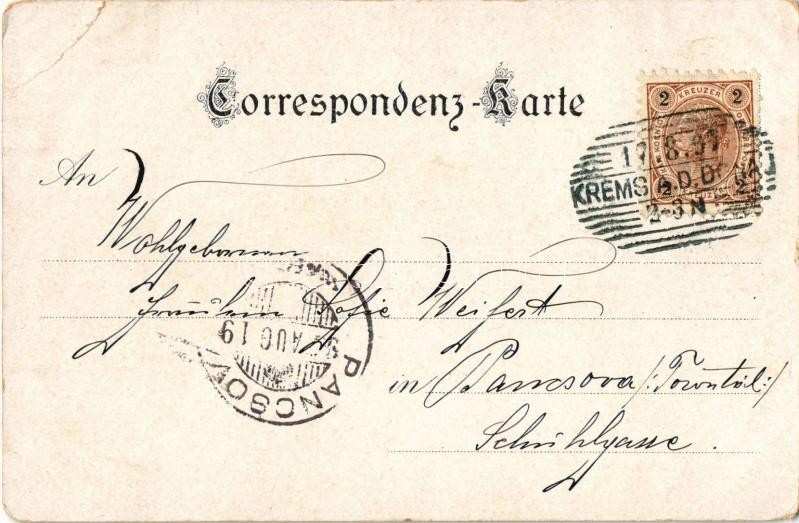 Correspondenz-Karte
2 KREUZER 2
2 2
17.8.97
KREMS A.D. DONAU
2-3 N
An
Wohlgebornen
Fräulein Sofie Weifert
in Pancsova /:Torontál:/
Schühlgasse.
PANCSOVA
AUG 19